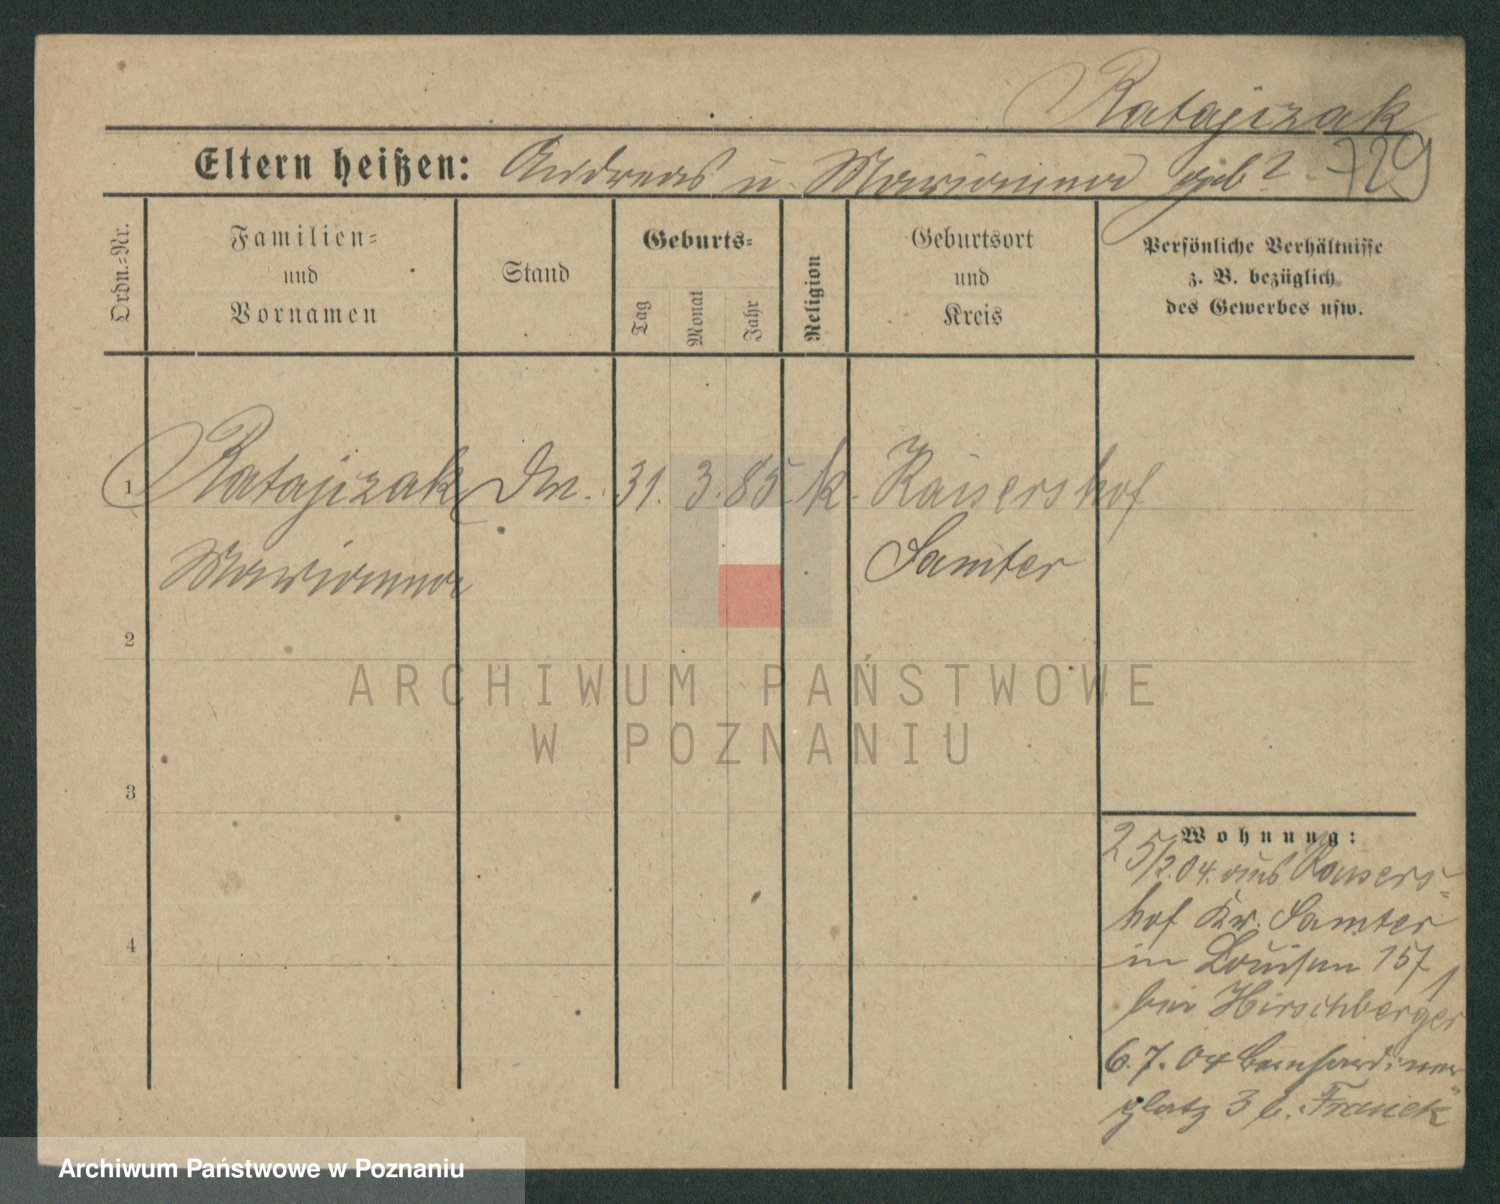 Ratajczak
Eltern heißen: Andreas u. Marianna geb? 729
Ordn.-Nr.
Familien-
und
Vornamen
Stand
Geburts-
Tag
Monat
Jahr
Religion
Geburtsort
und
Kreis
Persönliche Verhältnisse
z. B. bezüglich
des Gewerbes usw.
1 Ratajczak Dm. 31. 3. 85 k. Kaisershof
Marianna Samter
2
3
4
Wohnung:
25/2.04. aus Kaisers-
hof Kr. Samter
in Louisen 15
bei Hirschberger
6.7.04 Bernhardiner
platz 3 b.
ARCHIWUM PAŃSTWOWE
W POZNANIU
Archiwum Państwowe w Poznaniu